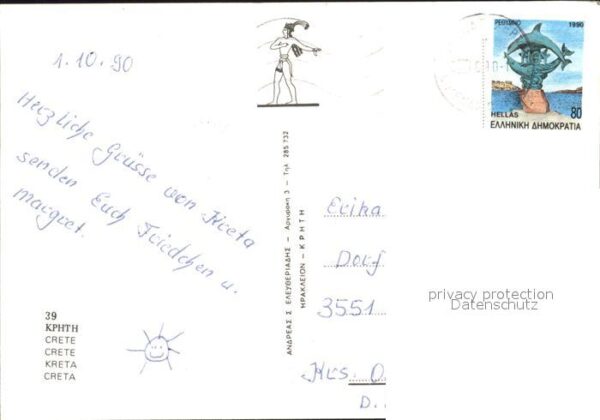 1.10.90
Herzliche Grüsse von Kreta
senden Euch Friedchen u.
margret.
39
ΚΡΗΤΗ
CRETE
CRETE
KRETA
CRETA
ΑΝΔΡΕΑΣ Σ ΕΛΕΥΘΕΡΙΑΔΗΣ – Αργυράκη 3 – Τηλ 285 732
ΗΡΑΚΛΕΙΟΝ - ΚΡΗΤΗ
ΡΕΘΥΜΝΟ 1990
HELLAS 80
ΕΛΛΗΝΙΚΗ ΔΗΜΟΚΡΑΤΙΑ
Erika
Dorf
3551
Krs.
D.
privacy protection
Datenschutz